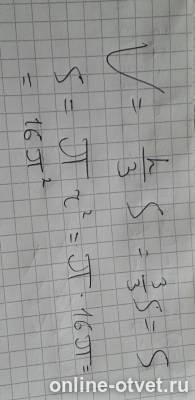 V = h/3 S = 3/3 S = S
S = π r² = π · 16π =
= 16π²
online-otvet.ru